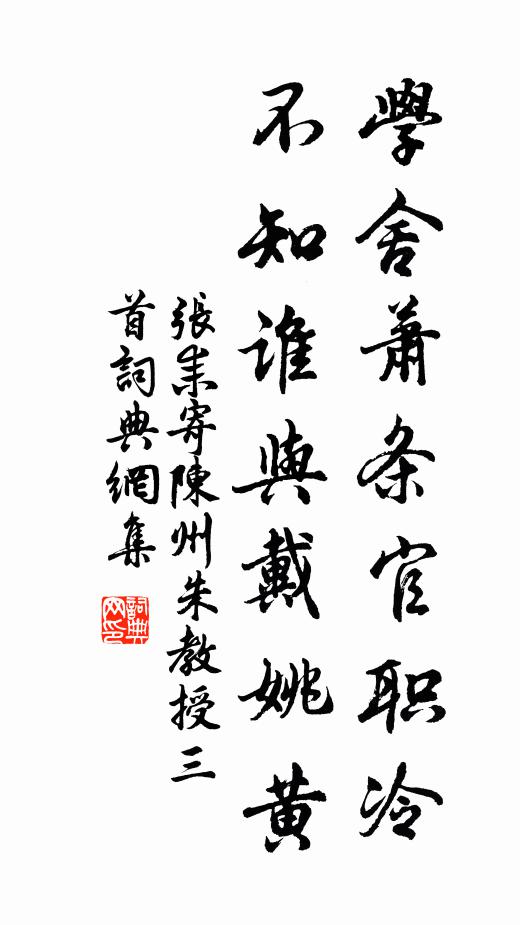 學舍蕭条官职冷
不知誰與戴姚黄
張耒寄陳州朱教授三
首詞典網集
詞典
网印